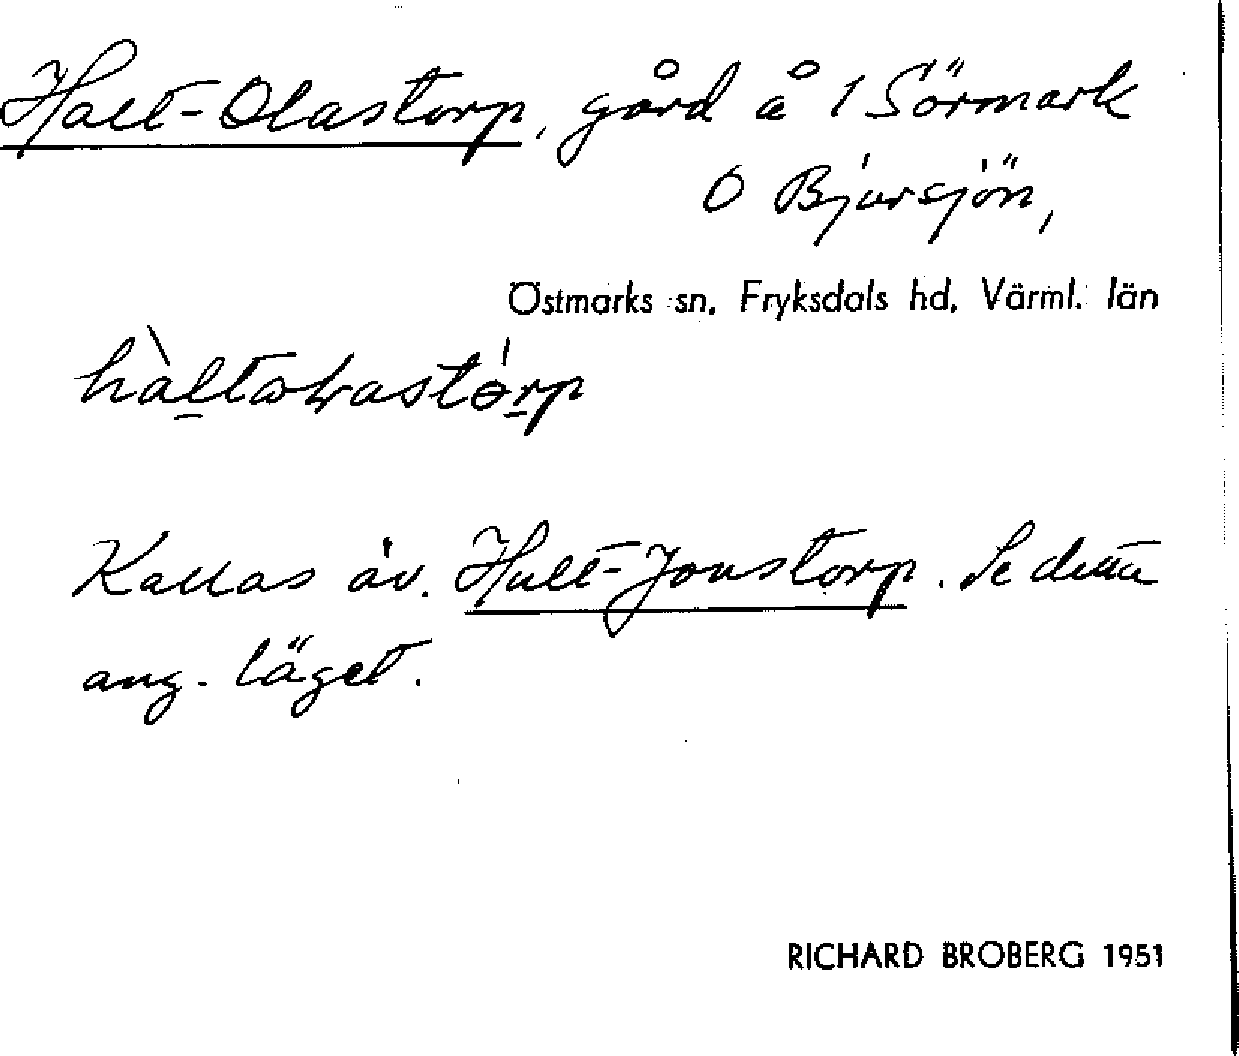 Halt-Olastorp, gård å 1 Sörmark
O Bjursjön,
Östmarks sn, Fryksdals hd, Värml. län
Kallas äv. Halt-Jonstorp. Se detta
ang. läget.
RICHARD BROBERG 1951